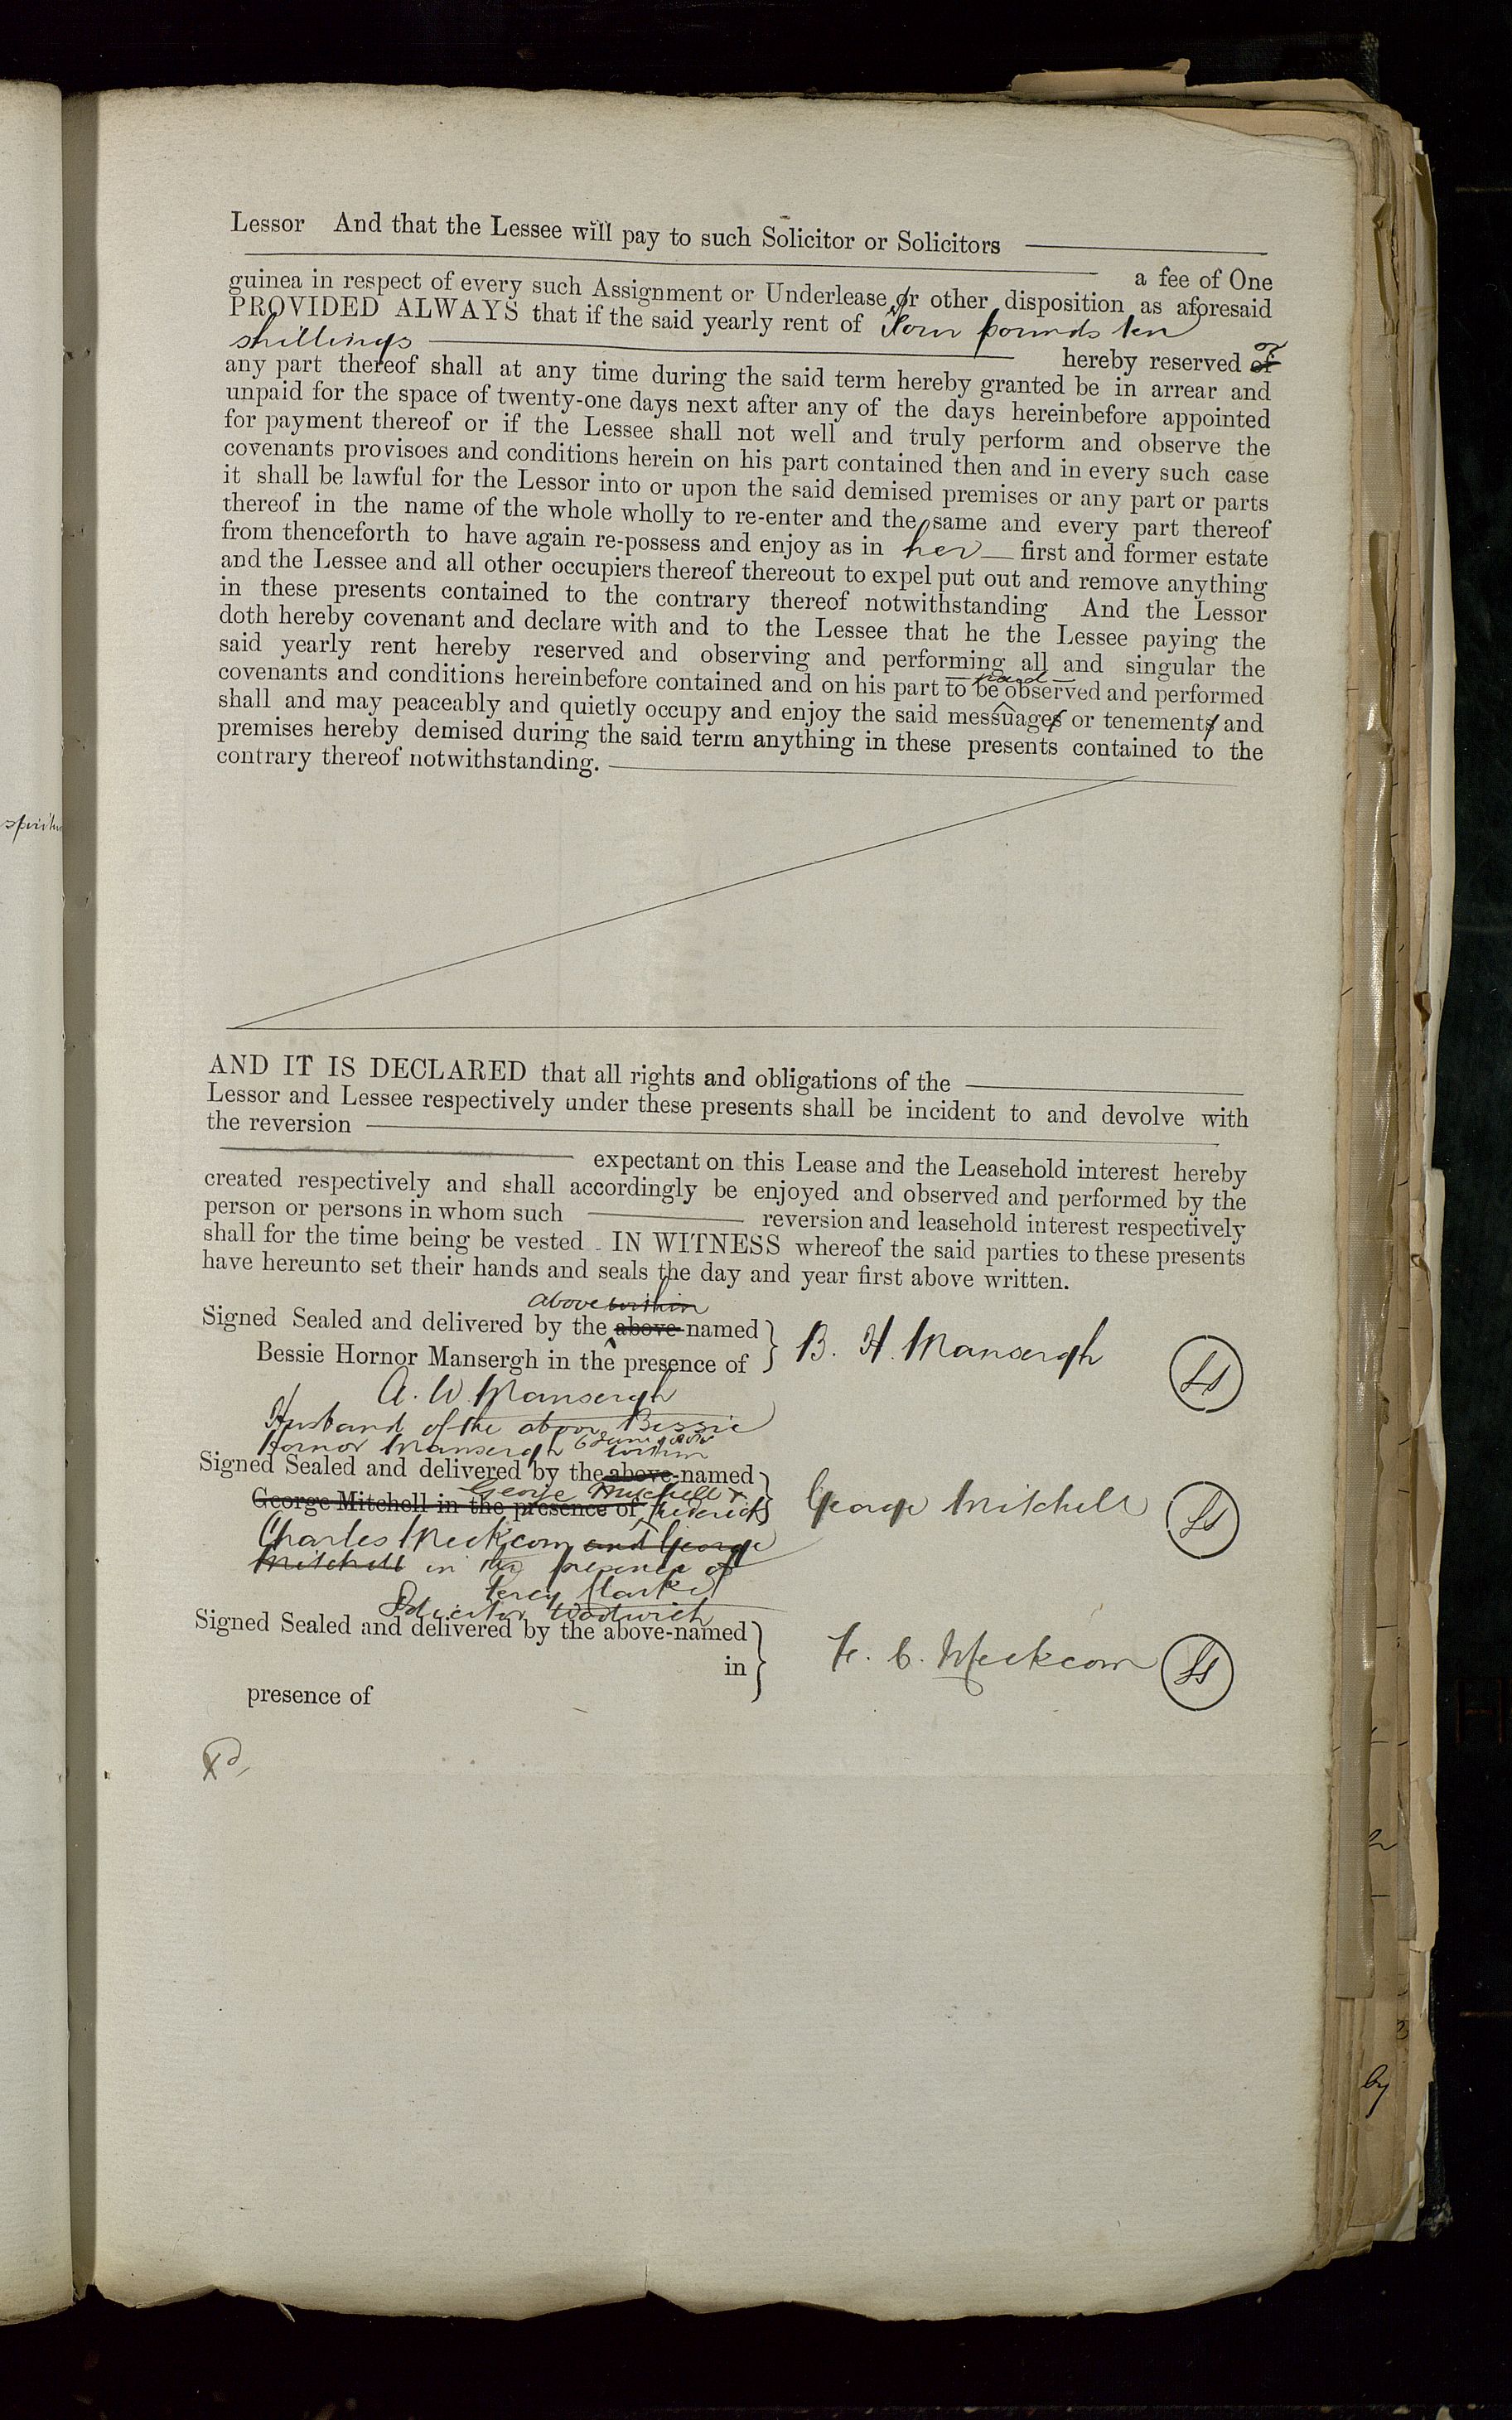 Lessor And that the Lessee will pay to such Solicitor or Solicitors
a fee of One
guinea in respect of every such Assignment or Underlease or other disposition as aforesaid
PROVIDED ALWAYS that if the said yearly rent of Four pounds ten
shillings hereby reserved or
any part thereof shall at any time during the said term hereby granted be in arrear and
unpaid for the space of twenty-one days next after any of the days hereinbefore appointed
for payment thereof or if the Lessee shall not well and truly perform and observe the
covenants provisoes and conditions herein on his part contained then and in every such case
it shall be lawful for the Lessor into or upon the said demised premises or any part or parts
thereof in the name of the whole wholly to re-enter and the same and every part thereof
from thenceforth to have again re-possess and enjoy as in her first and former estate
and the Lessee and all other occupiers thereof thereout to expel put out and remove anything
in these presents contained to the contrary thereof notwithstanding And the Lessor
doth hereby covenant and declare with and to the Lessee that he the Lessee paying the
said yearly rent hereby reserved and observing and performing all and singular the
covenants and conditions hereinbefore contained and on his part to be paid observed and performed
shall and may peaceably and quietly occupy and enjoy the said messuages or tenements and
premises hereby demised during the said term anything in these presents contained to the
contrary thereof notwithstanding.
AND IT IS DECLARED that all rights and obligations of the
Lessor and Lessee respectively under these presents shall be incident to and devolve with
the reversion
expectant on this Lease and the Leasehold interest hereby
created respectively and shall accordingly be enjoyed and observed and performed by the
person or persons in whom such reversion and leasehold interest respectively
shall for the time being be vested IN WITNESS whereof the said parties to these presents
have hereunto set their hands and seals the day and year first above written.
above within
Signed Sealed and delivered by the above-named
Bessie Hornor Mansergh in the presence of
B. H. Mansergh
LS
A. W. Mansergh
Husband of the above Bessie
Hornor Mansergh
within
Signed Sealed and delivered by the above-named
George Mitchell &
George Mitchell in the presence of Frederick
George Mitchell
LS
Charles Meekcom and George
Mitchell in the presence of
Percy Clarke
Solicitor Woolwich
Signed Sealed and delivered by the above-named
in
presence of
F. C. Meekcom
LS